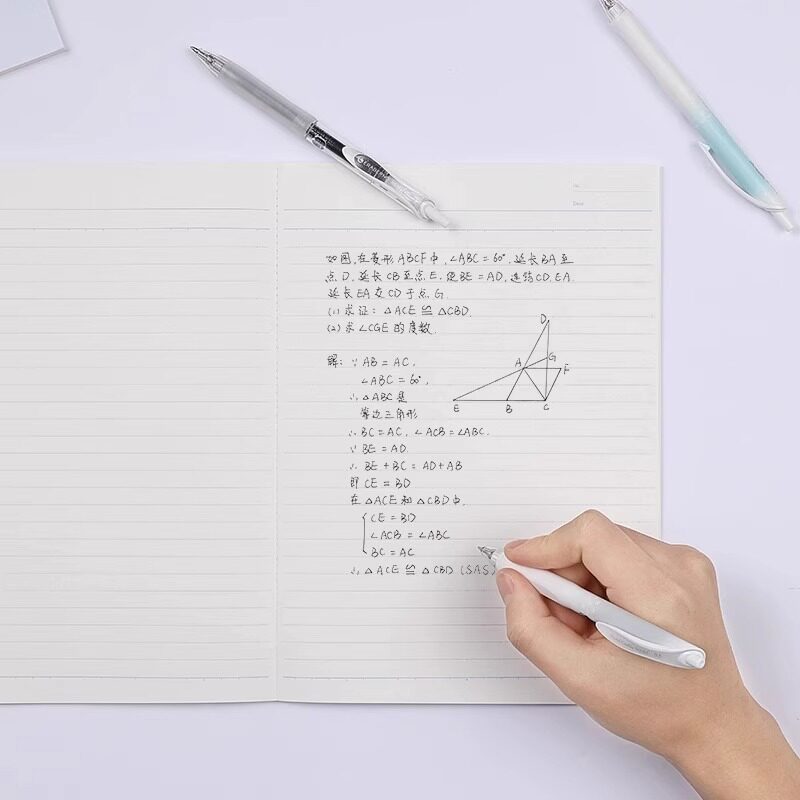 No.
Date
如图,在菱形ABCF中,∠ABC=60°,延长BA至
点D,延长CB至点E,使BE=AD,连结CD,EA,
延长EA交CD于点G.
(1)求证:△ACE≌△CBD.
(2)求∠CGE的度数.
解:∵AB=AC,
∠ABC=60°,
∴△ABC是
等边三角形
∴BC=AC,∠ACB=∠ABC.
∵BE=AD
∴BE+BC=AD+AB
即CE=BD
在△ACE和△CBD中,
CE=BD
∠ACB=∠ABC
BC=AC
∴△ACE≌△CBD(SAS)
D
G
A
F
E
B
C